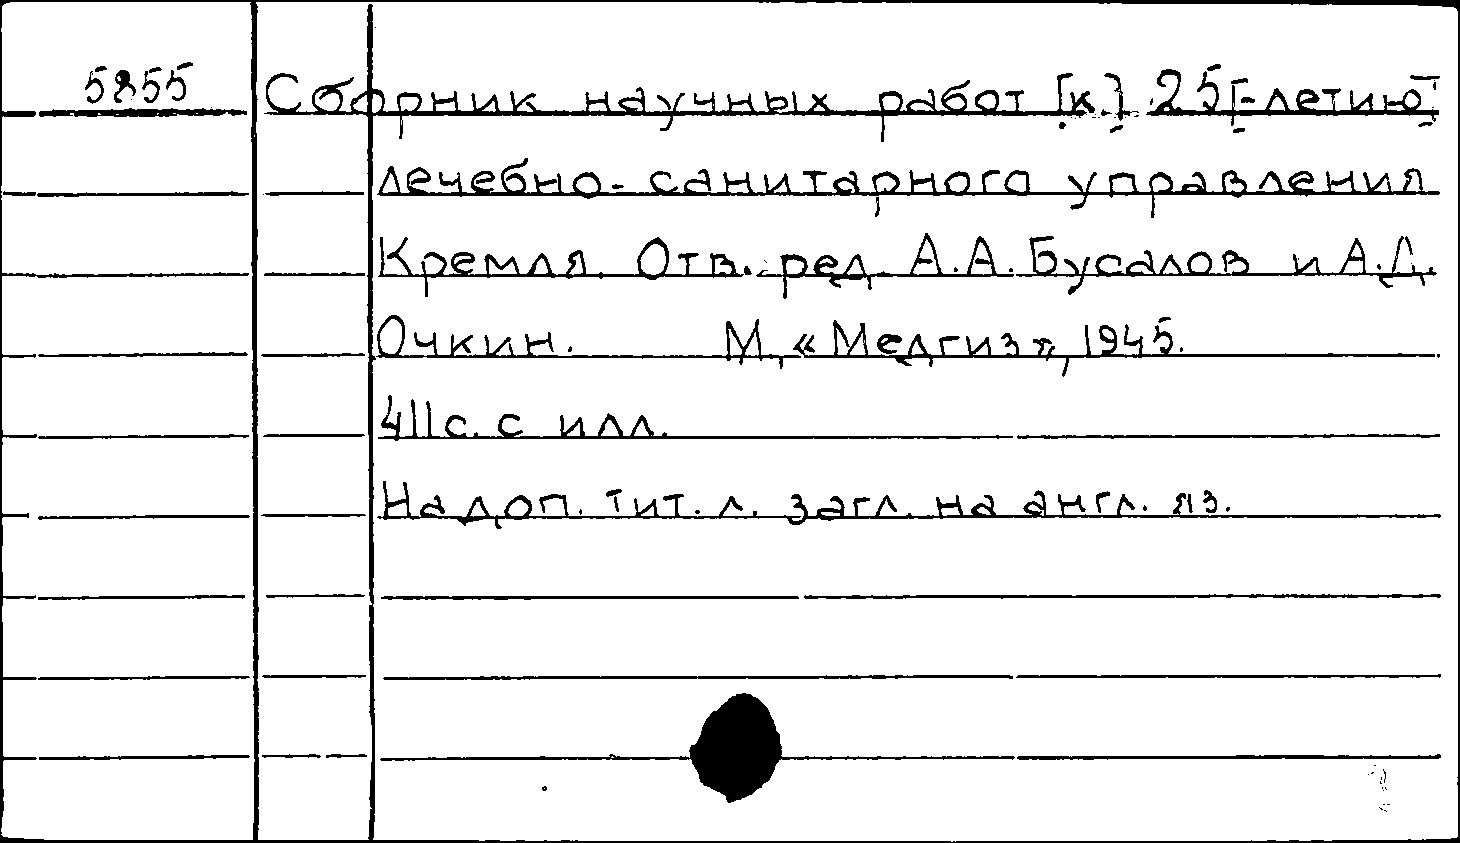 5855 Сборник научных работ [к] 25[-летию]
лечебно-санитарного управления
Кремля. Отв. ред. А.А. Бусалов и А.Д.
Очкин. М., «Медгиз», 1945.
411 с. с илл.
На доп. тит. л. загл. на англ. яз.